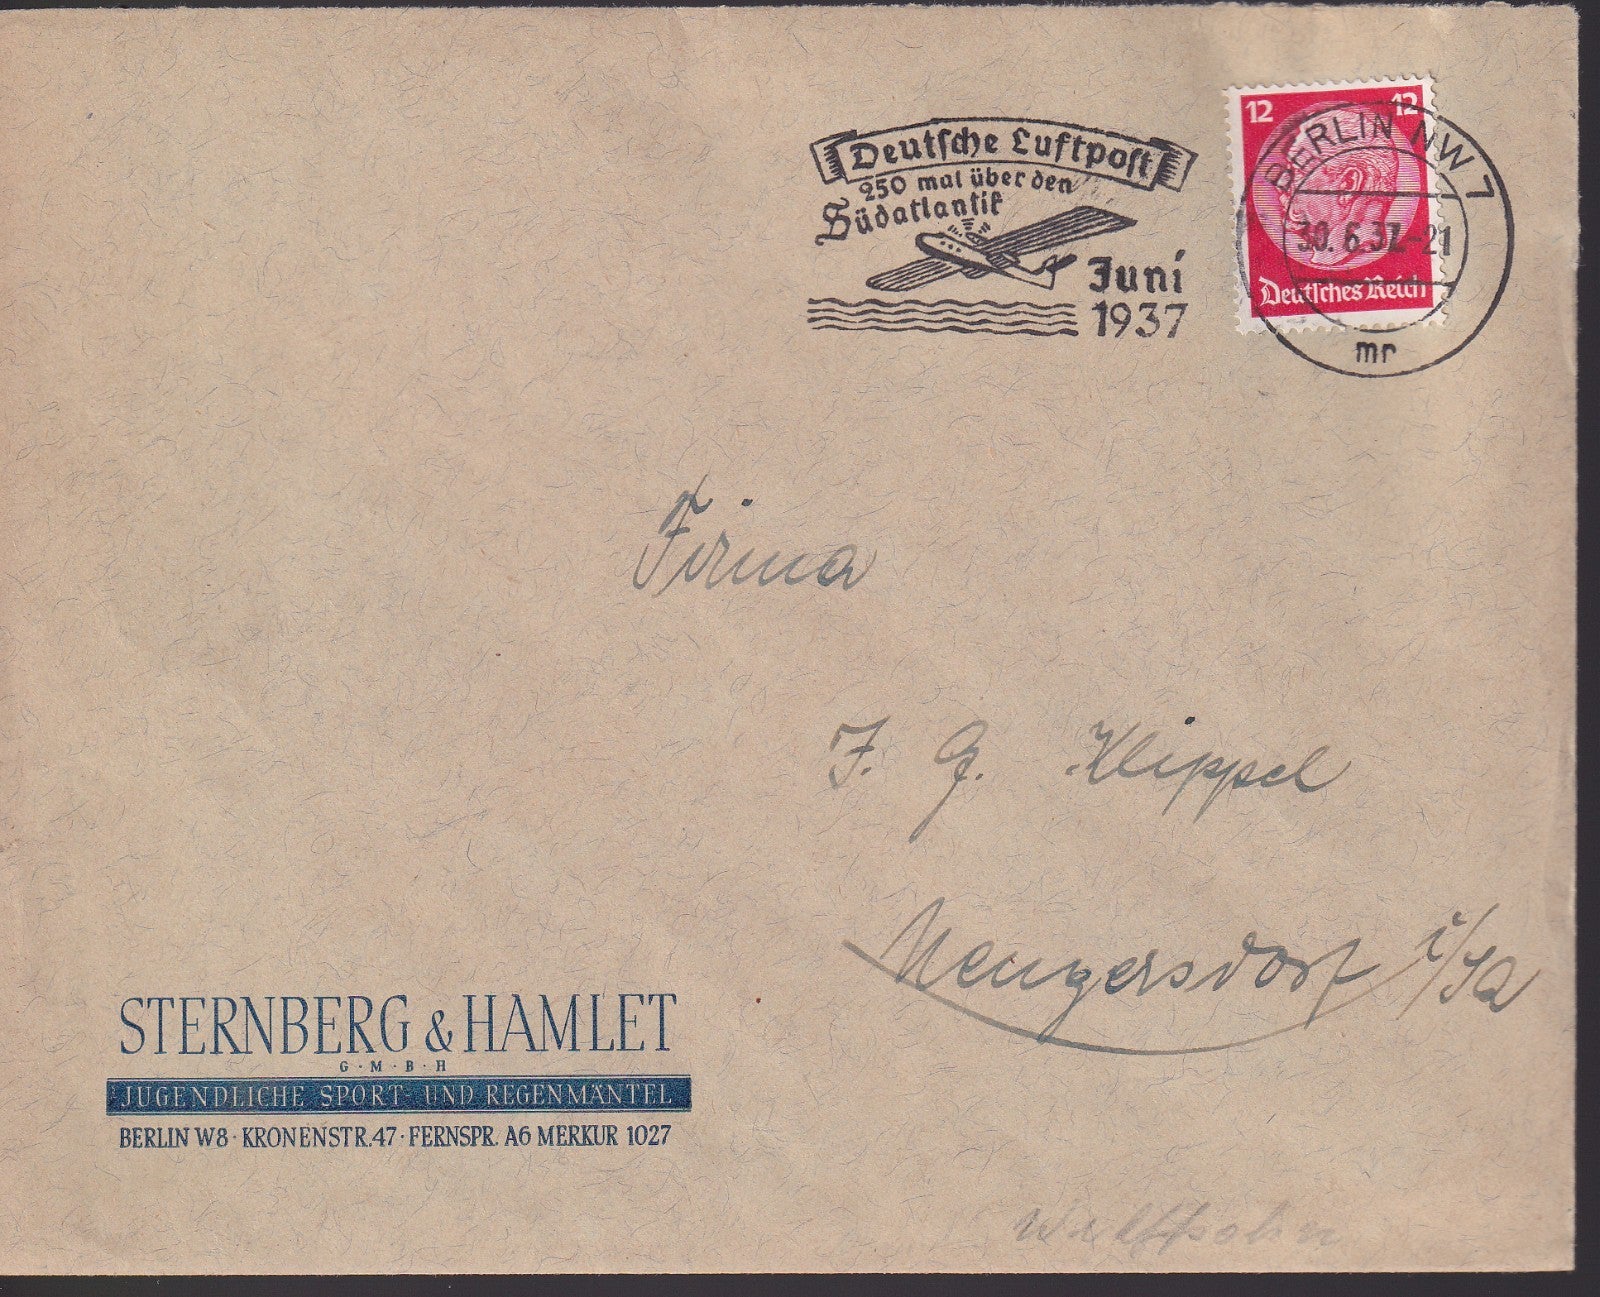 Deutsche Luftpost
250 mal über den
Südatlantik
Juni
1937
12 12
Deutsches Reich
BERLIN NW 7
30. 6. 37.-21
mr
Firma
J. G. Klippel
Neugersdorf i/Sa
STERNBERG & HAMLET
G·M·B·H
JUGENDLICHE SPORT- UND REGENMÄNTEL
BERLIN W8·KRONENSTR.47·FERNSPR. A6 MERKUR 1027